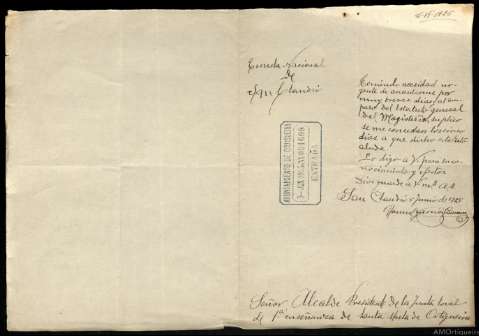 Escuela Nacional
De
San Claudio
Teniendo necesidad ur-
gente de ausentarme por
muy breves días, al am-
paro del Estatuto general
del Magisterio, suplico
se me concedan los cinco
días a que dicho estatuto
alude.
Lo digo a V. para su co-
nocimiento y efectos
Dios guarde a V. m.s a.s
San Claudio 5 Junio de 1925
AYUNTAMIENTO DE ORTIGUEIRA
ENTRADA
Señor Alcalde Presidente de la Junta local
de 1ª enseñanza de Santa Marta de Ortigueira
AMOrtigueira